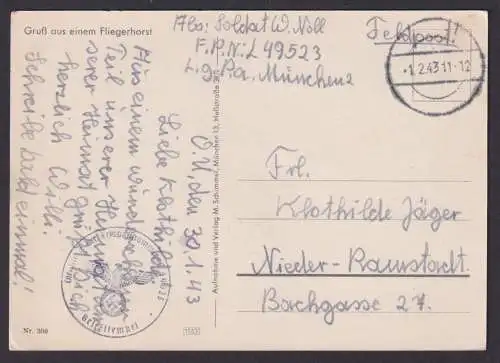 Gruß aus einem Fliegerhorst
Abs: Soldat W. Noll
F.P.N: L 49523
L.g.Pa. München 2
Feldpost!
-1.2.43 11-12
O.U, den 30.1.43
Liebe Klothilde!
Aus einem wunderschönen
Teil unserer Heimat un-
serer Heimat grüßt Dich
herzlich Willi.
Schreibe bald einmal!
Aufnahme und Verlag M. Schimmel, München 13, Heßstraße
Frl.
Klothilde Jäger
Nieder-Ramstadt.
Bachgasse 27
Briefstempel
Nr. 300